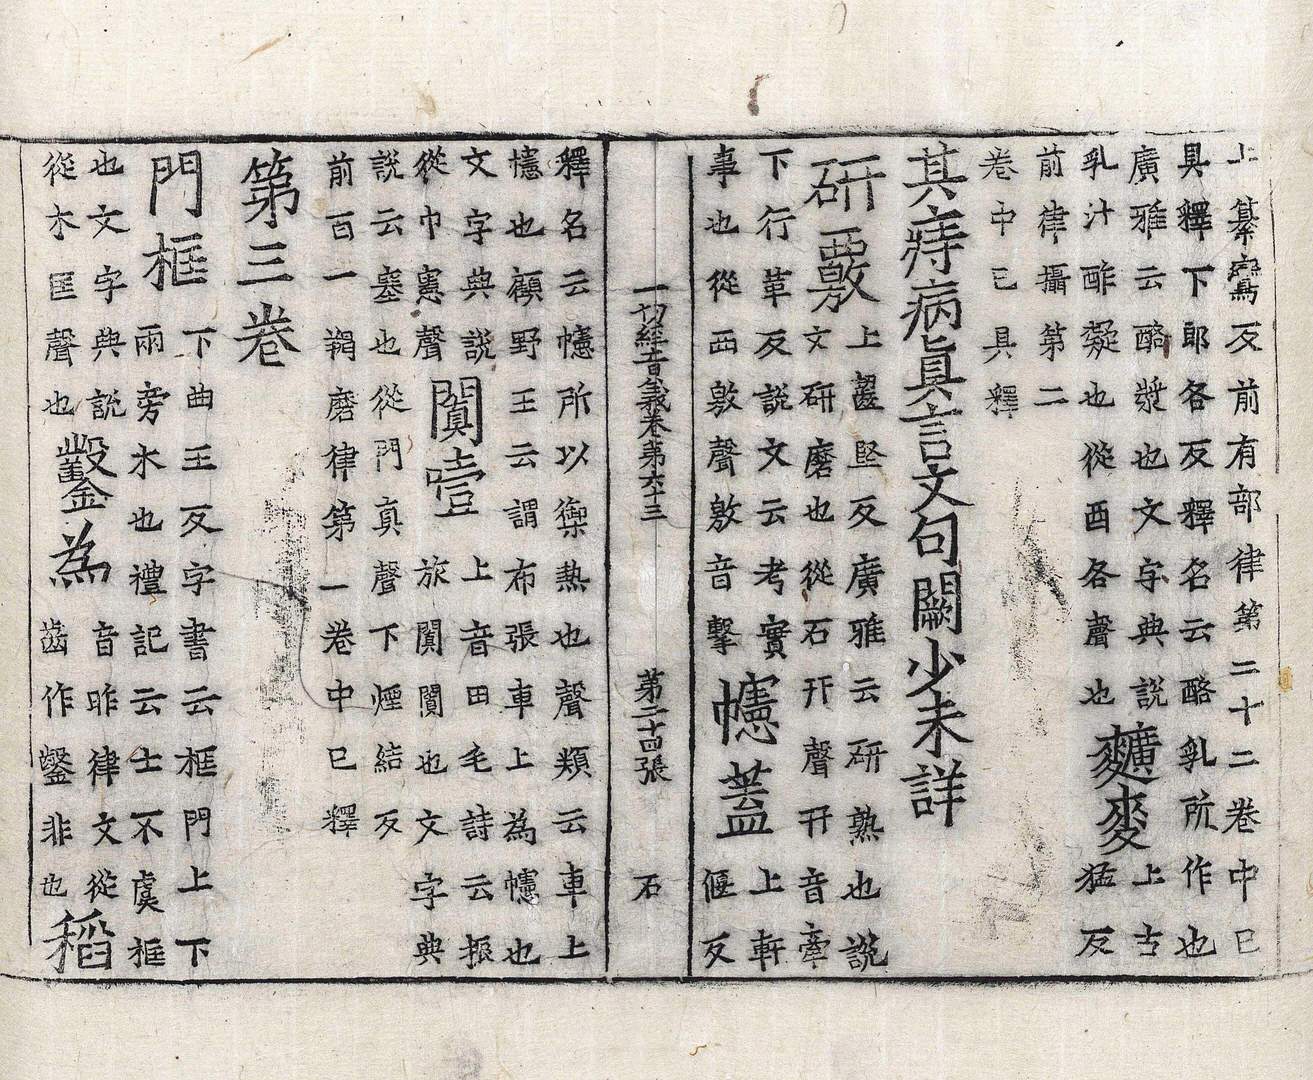 上纂鸞反前有部律第二十二卷中已
具釋下郎各反釋名云酪乳所作也
廣雅云酪漿也文字典說
乳汁酢凝也從酉各聲也
䵃麥
上古
猛反
前律攝第二
卷中已具釋
其痔病真言文句闕少未詳
研覈
上齧堅反廣雅云研熟也說
文研磨也從石幵聲幵音牽
下行革反說文云考實
事也從襾敫聲敫音擊
幰蓋
上軒
偃反
一切經音義卷第六十三 第二十四張 石
釋名云幰所以禦熱也聲類云車上
幰也顧野王云謂布張車上為幰也
文字典說
從巾憲聲
闐噎
上音田毛詩云振
旅闐闐也文字典
說云塞也從門真聲下煙結反
前百一羯磨律第一卷中已釋
第三卷
門框
下曲王反字書云框門上下
兩旁木也禮記云士不虞框
也文字典說
從木匡聲也
鑿為
音昨律文從
齒作鑿非也
稻